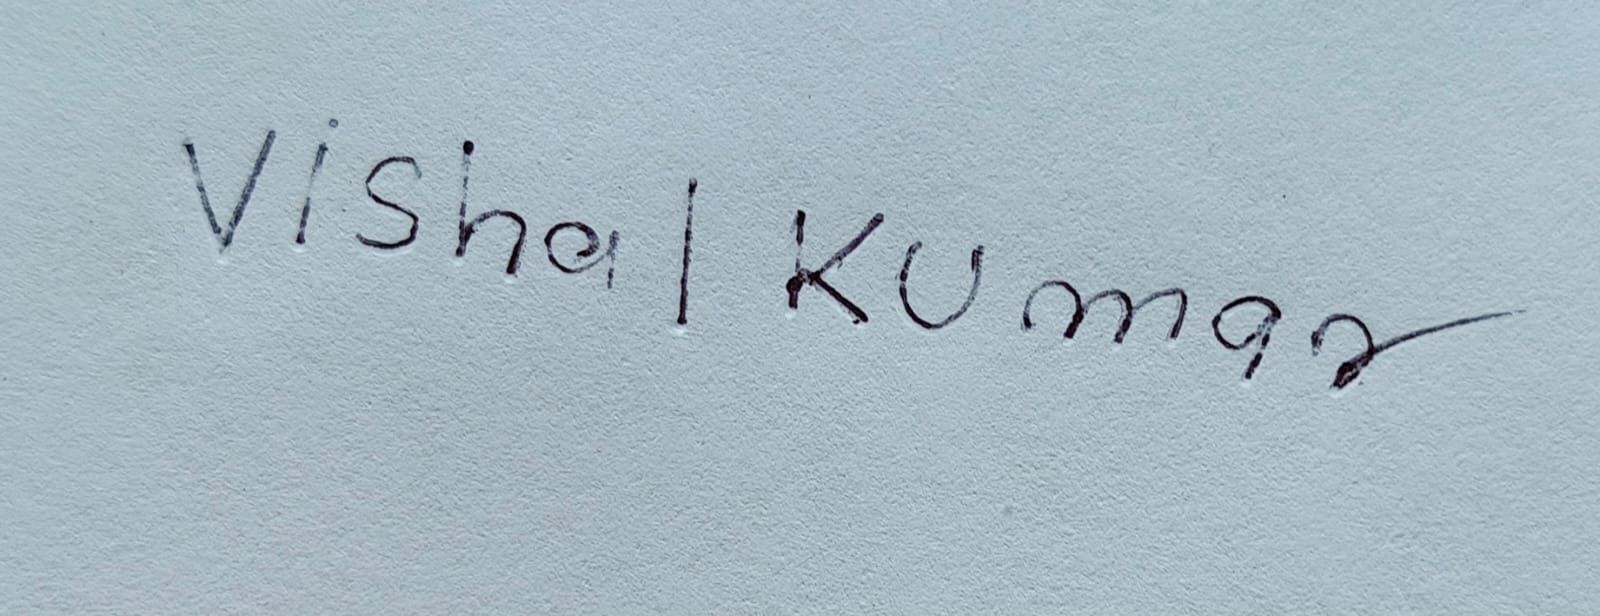 Vishal Kumar